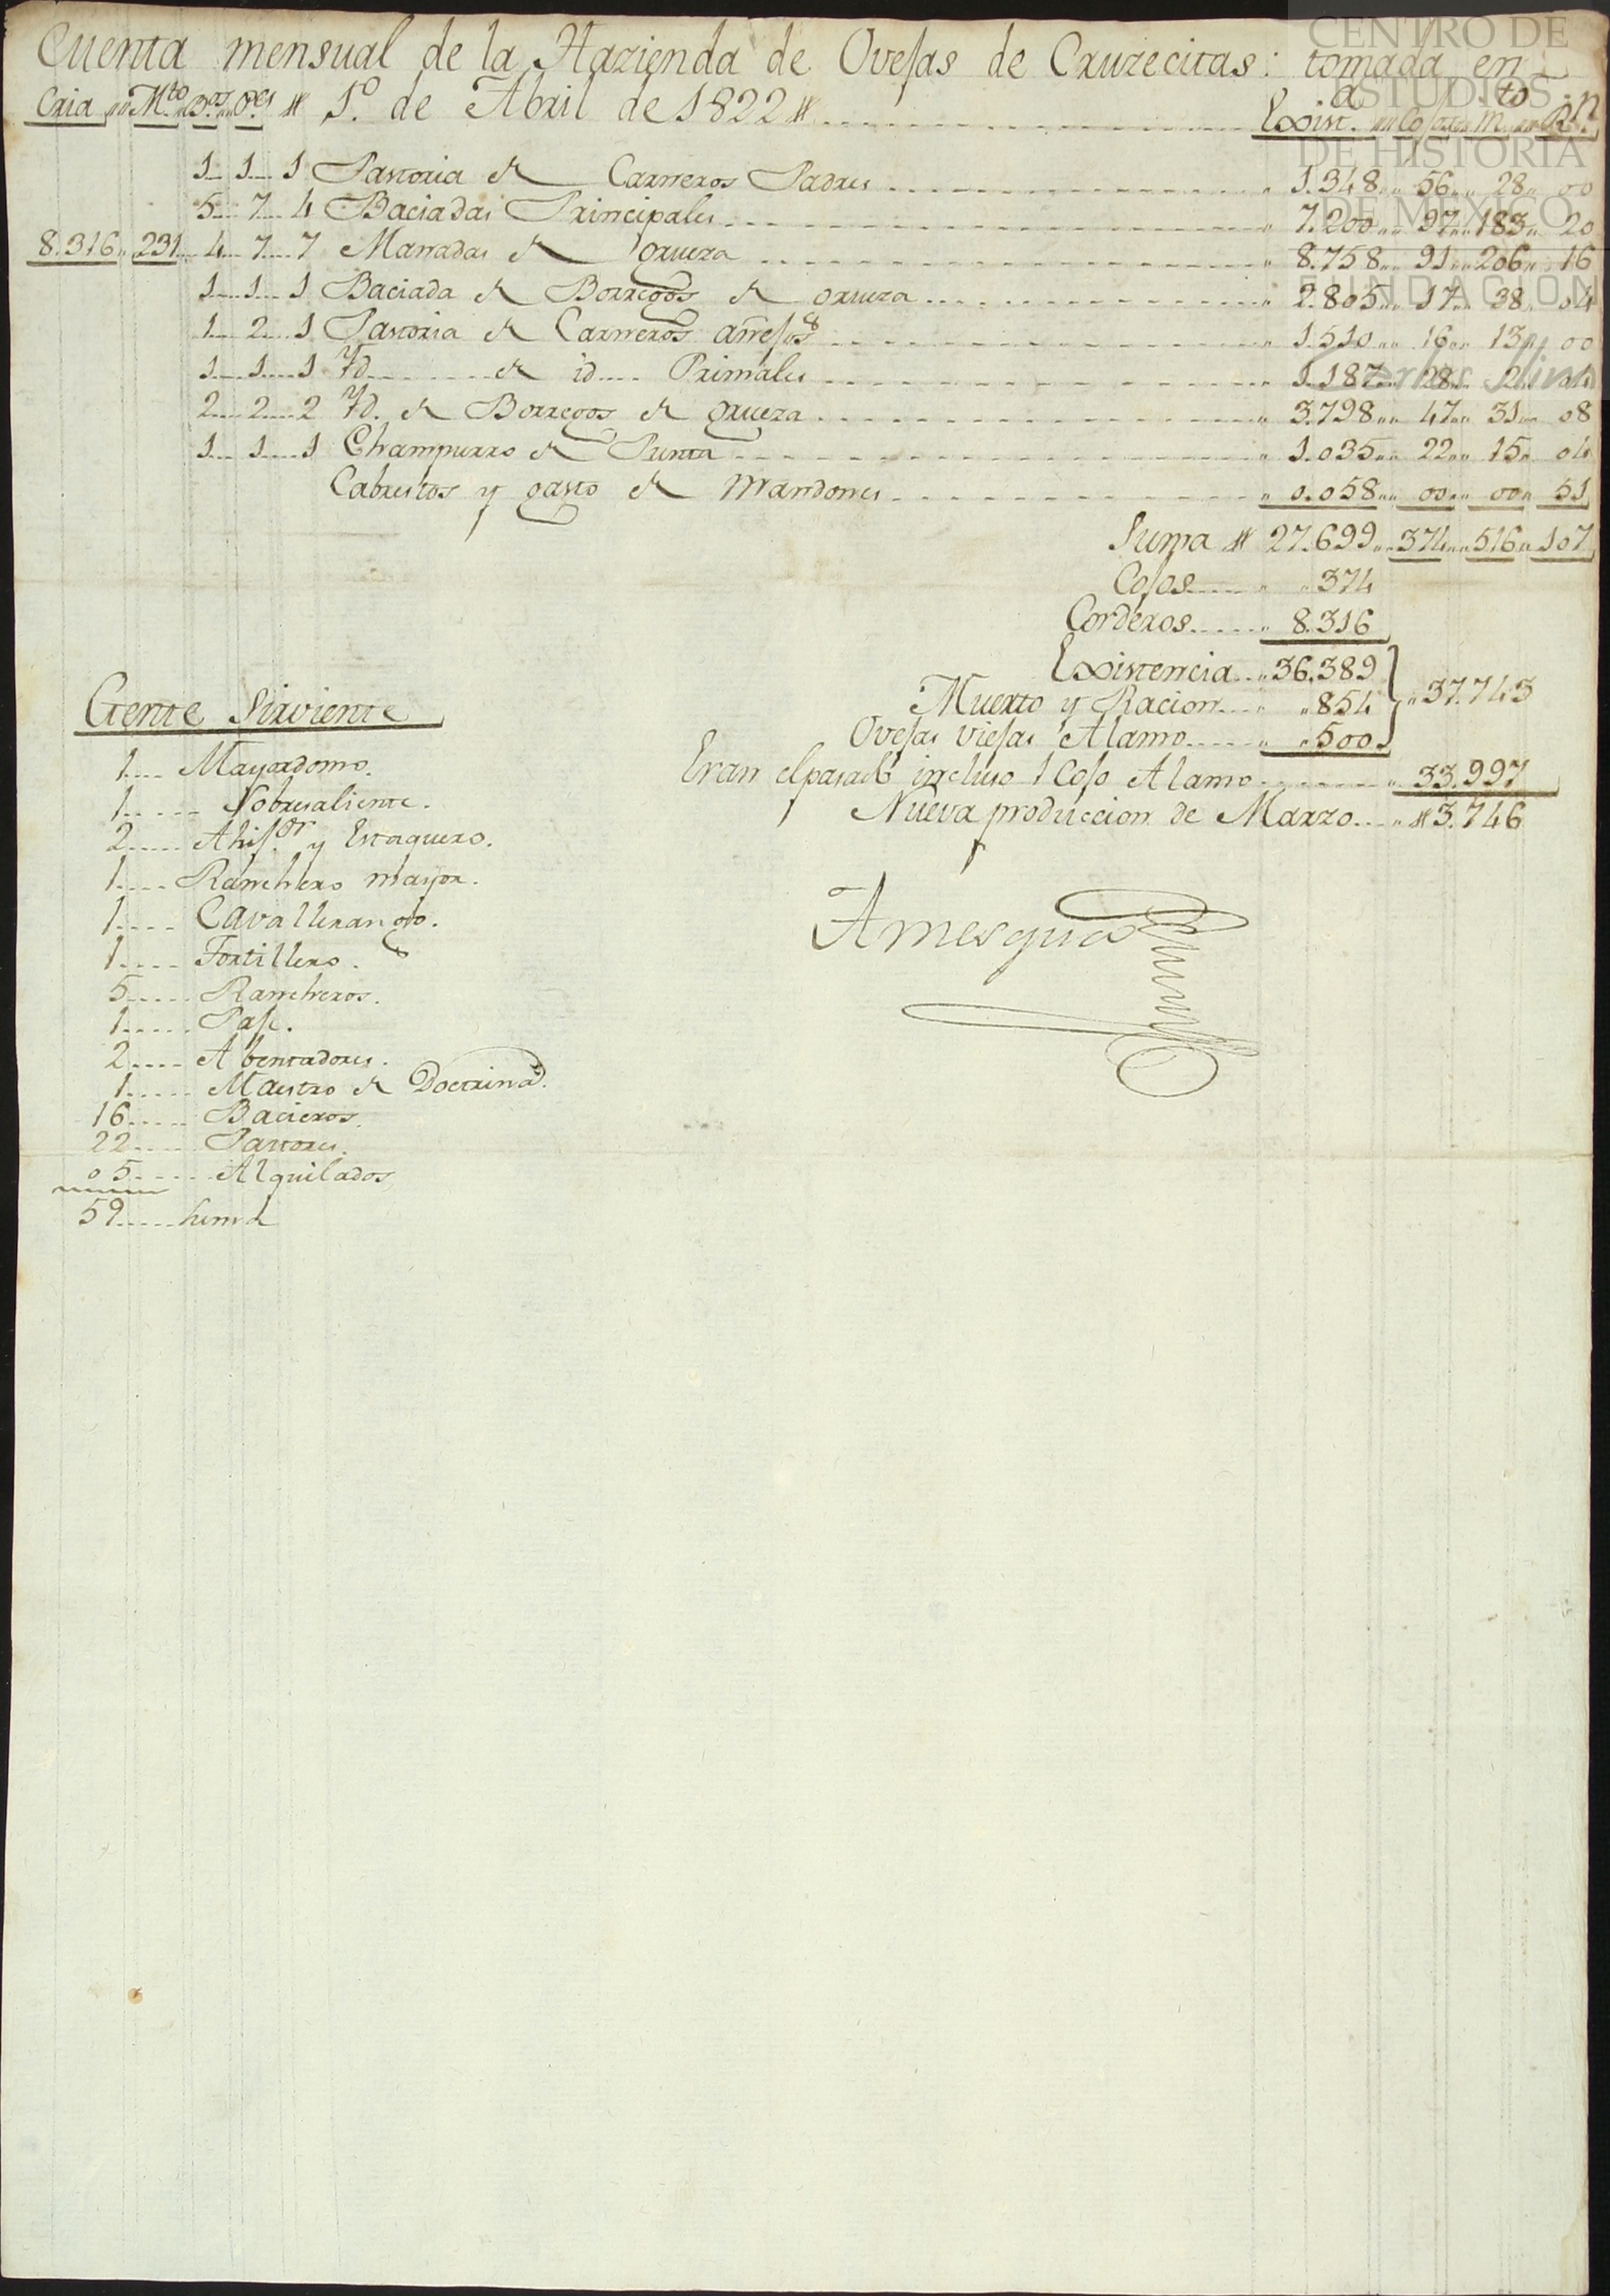 Cuenta mensual de la Hazienda de Ovejas de Cruzecitas: tomada en
Cria Mto Ps Os 1º de Abril de 1822 Exista Cojos Mto Rn
1 1 1 Pastoria de Carneros Padres 1.348 56 28 00
5 7 4 Baciadas Principales 7.200 97 183 20
8.316 231 4 7 7 Manadas de grueza 8.758 91 206 16
1 1 1 Baciada de Borregos de grueza 2.805 17 38 04
1 2 1 Pastoria de Carneros añejos 1.510 16 13 00
1 1 1 Yd. de id. Primales 1.187 28 2 04
2 2 2 Yd. de Borregos de grueza 3.798 47 31 08
1 1 1 Champurro de Punta 1.035 22 15 04
Cabrestos y gasto de Mandones 0.058 00 00 51
Suma 27.699 374 516 107
Cojos 374
Corderos 8.316
Existencia 36.389
Muerto y Racion 854 37.743
Ovejas viejas Alamo 500
Eran el pasado incluso 1 Cojo Alamo 33.997
Nueva produccion de Marzo 3.746
Amesquita
Gente Sirviente
1 Mayordomo.
1 Sobresaliente.
2 Ahijor y Estaquero.
1 Ranchero mayor.
1 Cavallerango.
1 Tortillero.
5 Rancheros.
1 Paje.
2 Abentadores.
1 Maestro de Doctrina.
16 Bacieros.
22 Pastores.
05 Alquilados
59 Suma
CENTRO DE
ESTUDIOS
DE HISTORIA
DE MÉXICO
FUNDACIÓN
Carlos Slim